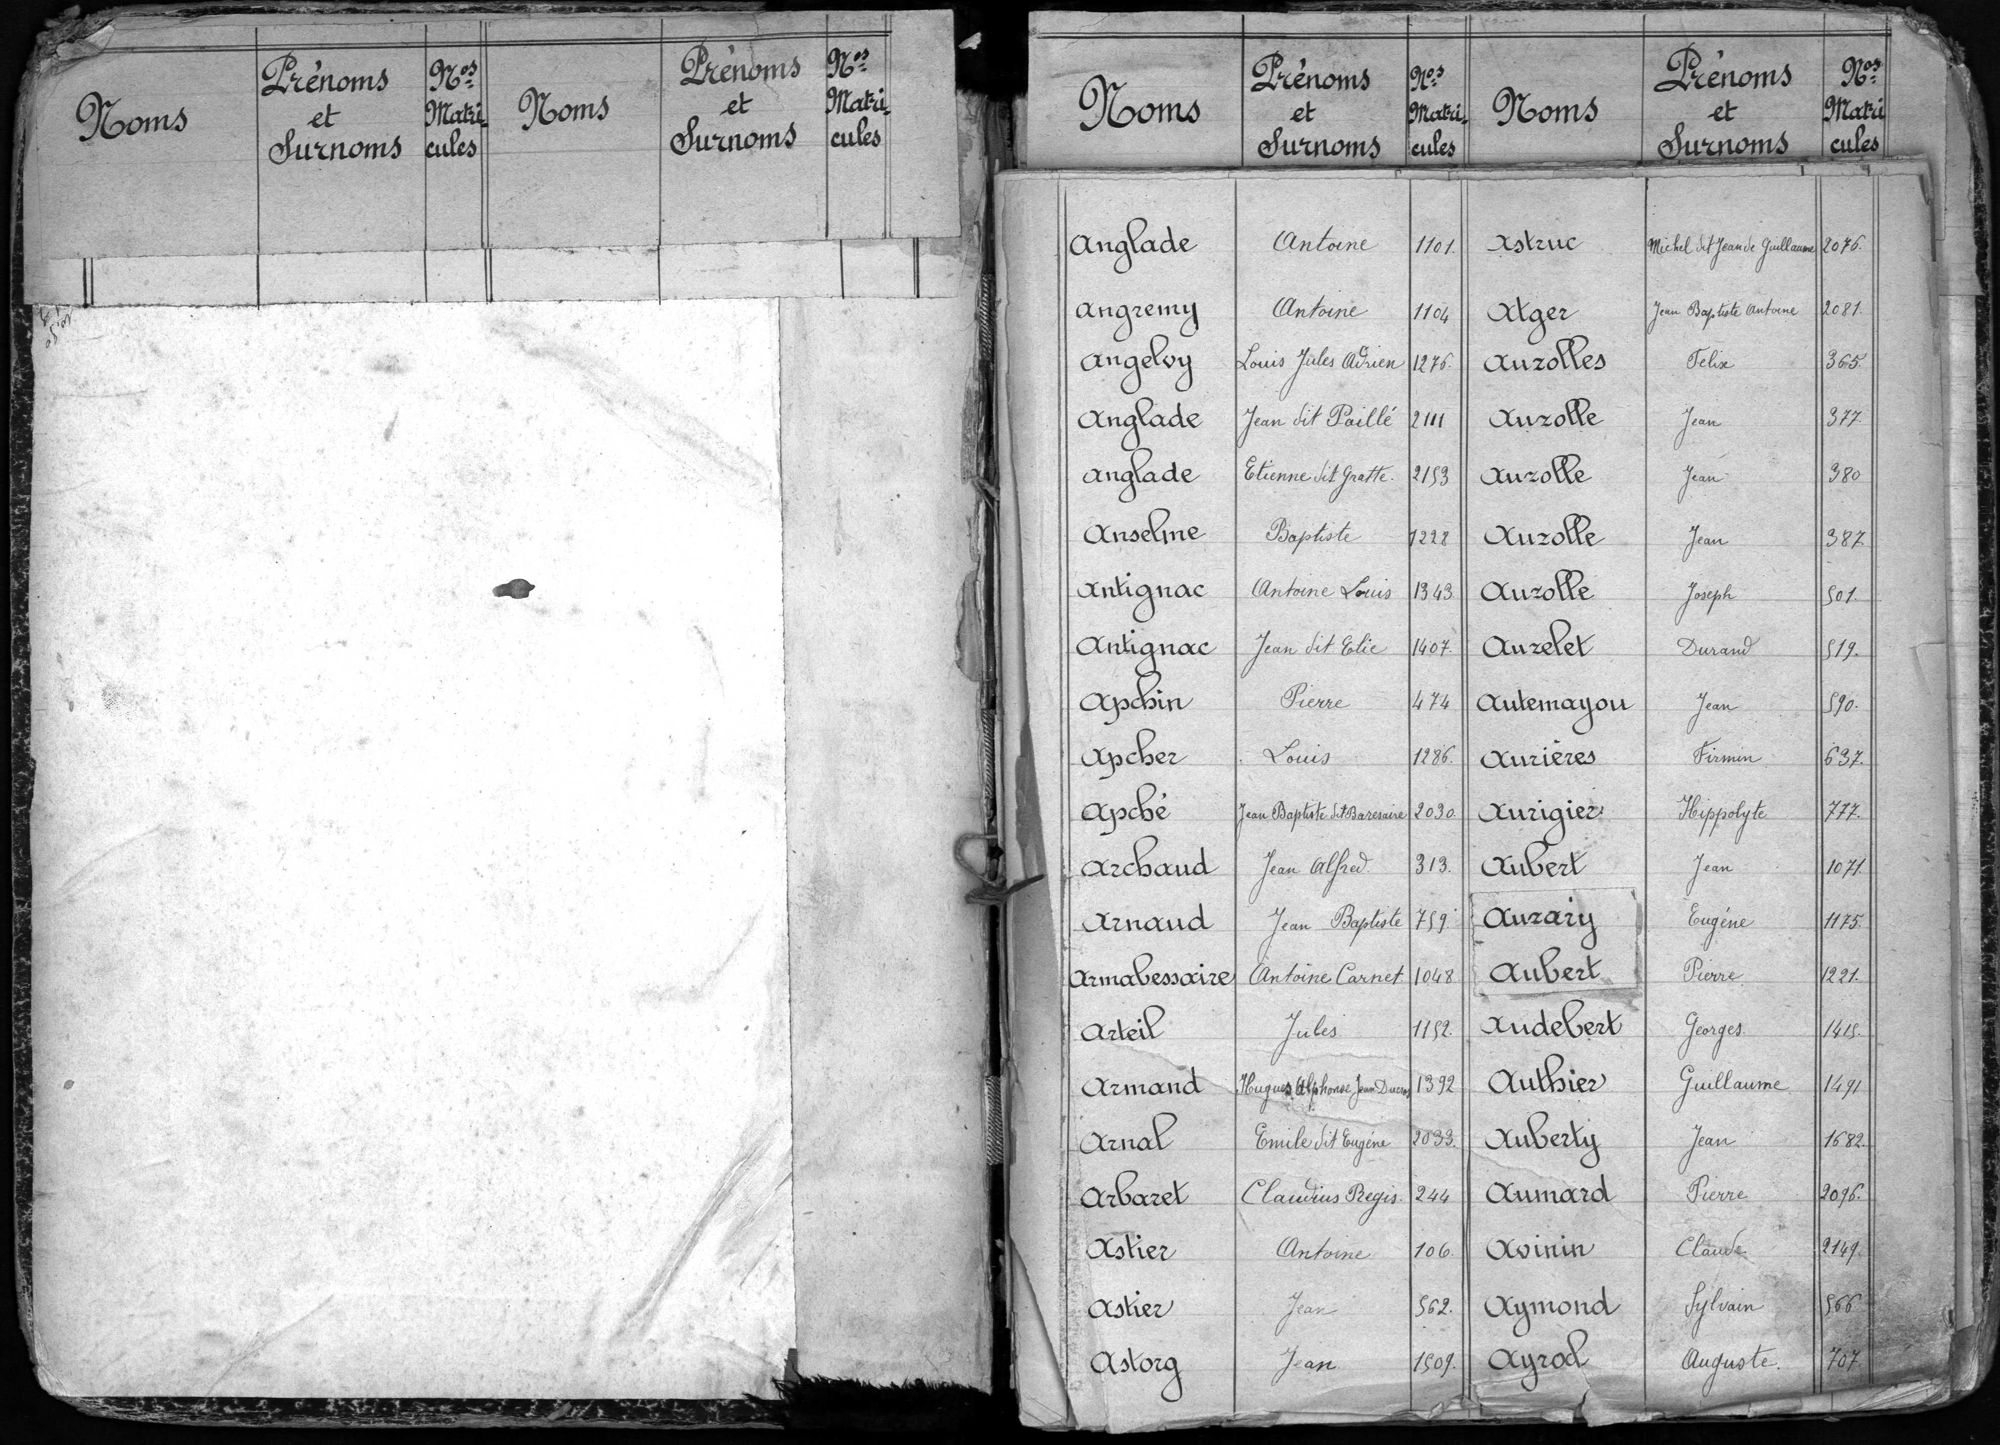 Noms Prénoms et Surnoms Nos Matricules Noms Prénoms et Surnoms Nos Matricules
Noms Prénoms et Surnoms Nos Matricules Noms Prénoms et Surnoms Nos Matricules
Anglade Antoine 1101. Astruc Michel dit Jean de Guillaume 2076.
Angremy Antoine 1104 Atger Jean Baptiste Antoine 2081.
Angelvy Louis Jules Adrien 1276. Auzolles Felix 365.
Anglade Jean dit Paillé 2111 Auzolle Jean 377.
Anglade Etienne dit Gratte. 2153 Auzolle Jean 380
Anselme Baptiste 1228 Auzolle Jean 387.
Antignac Antoine Louis 1343 Auzolle Joseph 501.
Antignac Jean dit Elie 1407. Auzelet Durand 519.
Apchin Pierre 474 Autemayou Jean 590.
Apcher Louis 1286. Aurières Firmin 637.
Apché Jean Baptiste dit Baresaire 2030. Aurigier Hippolyte 777.
Archaud Jean Alfred 313. Aubert Jean 1071.
Arnaud Jean Baptiste 759 Auzary Eugéne 1175.
Armabessaire Antoine Carnet. 1048 Aubert Pierre 1221.
Arteil Jules 1152. Audebert Georges 1415.
Armand Hugues Alphonse Jean 1392 Authier Guillaume 1491
Arnal Emile dit Eugéne 2033. Auberty Jean 1682.
Arbaret Claudius Regis. 244 Aumard Pierre 2096.
Astier Antoine 106. Avinin Claude 2149.
Astier Jean 562. Aymond Sylvain 566
Astorg Jean 1509. Ayrol Auguste. 707